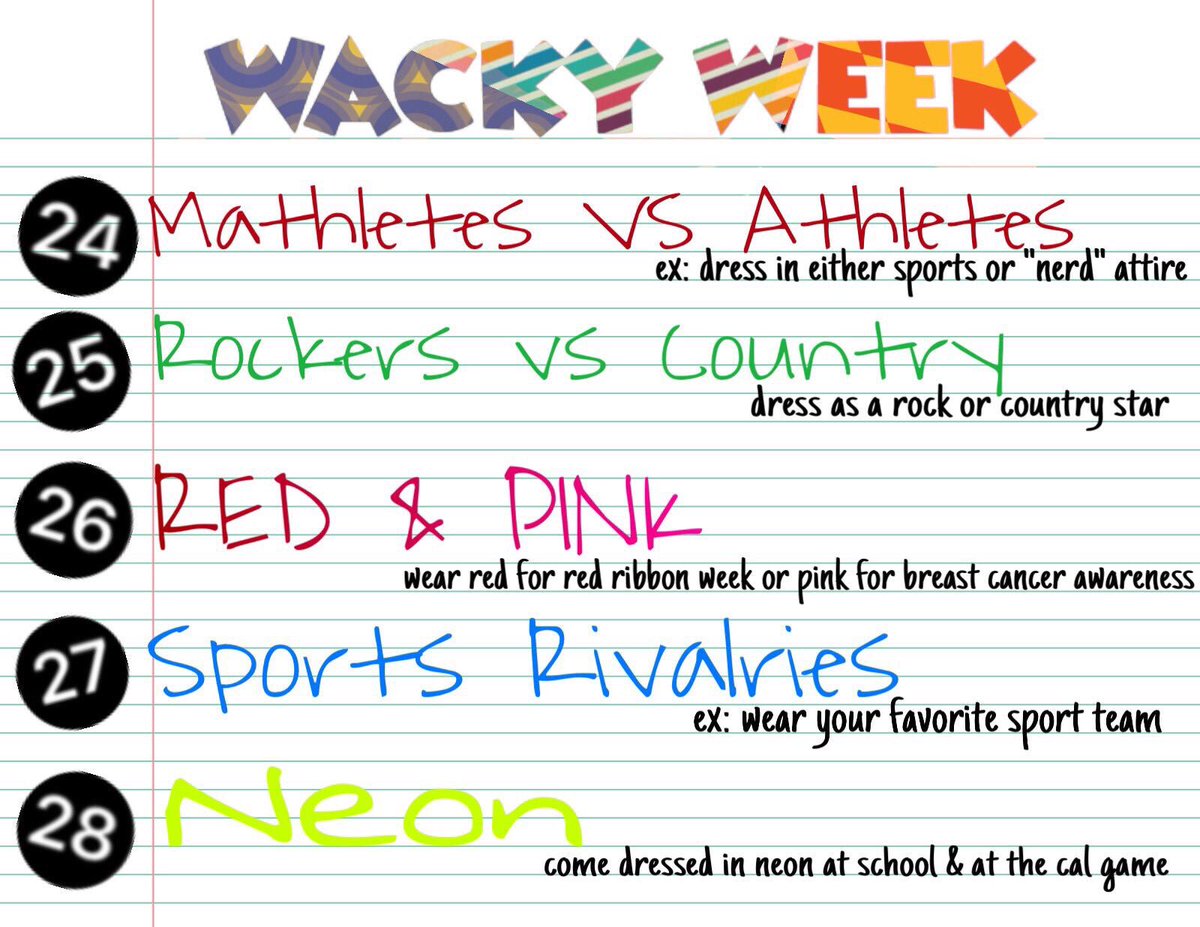 WACKY WEEK
24 Mathletes vs Athletes
ex: dress in either sports or "nerd" attire
25 Rockers vs Country
dress as a rock or country star
26 RED & PINK
wear red for red ribbon week or pink for breast cancer awareness
27 Sports Rivalries
ex: wear your favorite sport team
28 Neon
come dressed in neon at school & at the cal game